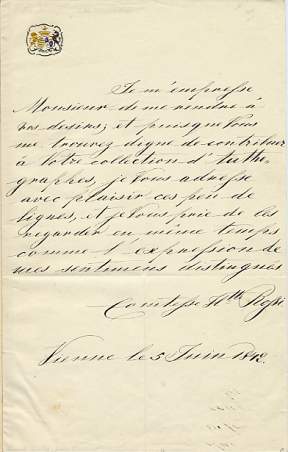 Je m'empresse
Monsieur de me rendre à
vos desirs; et puisque Vous
me trouvez digne de contribuer
à Votre collection d'Autho-
graphes, je Vous adresse
avec plaisir ces peu de
lignes, et je Vous prie de les
regarder en même temps
comme l'expression de
mes sentimens distingués
Comtesse Rossi
Vienne le 5 Juin 1842.